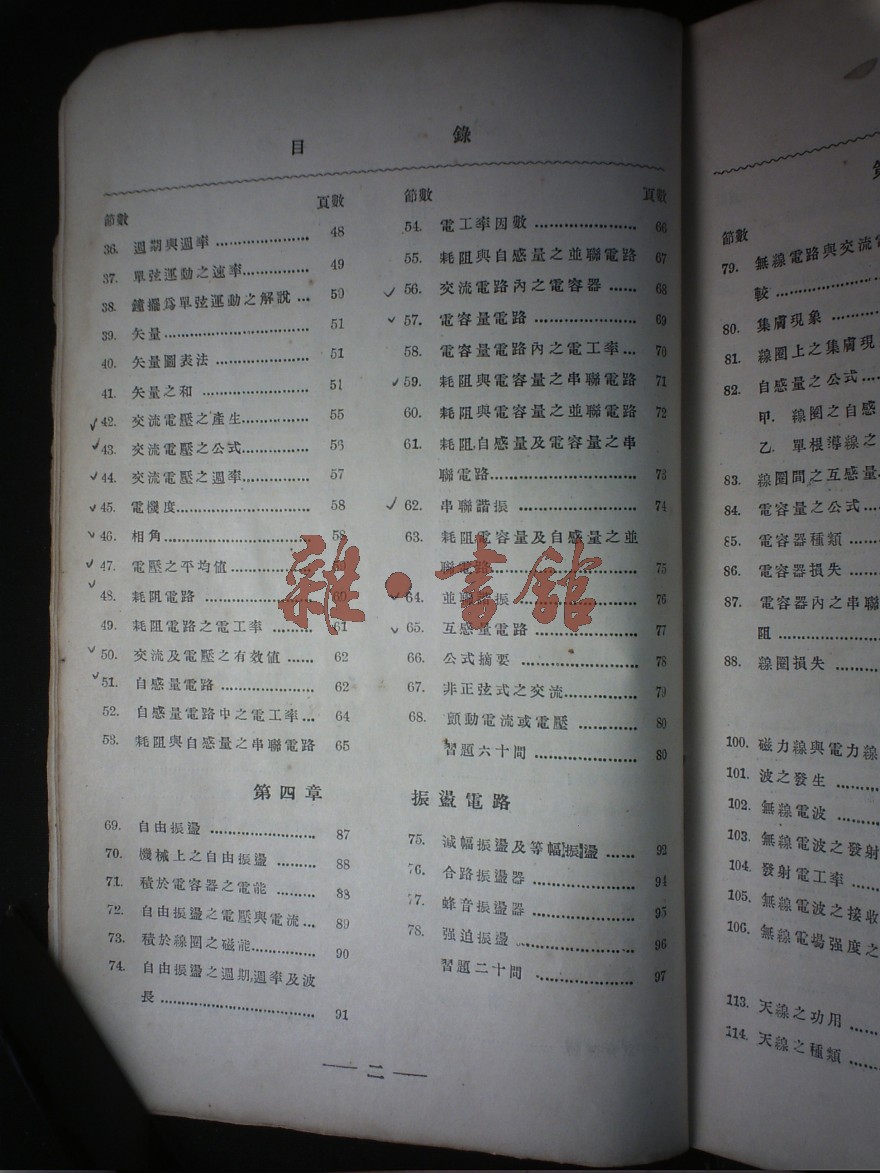 目 錄
節數 頁數
36. 週期與週率 48
37. 單弦運動之速率 49
38. 鐘擺爲單弦運動之解說 50
39. 矢量 51
40. 矢量圖表法 51
41. 矢量之和 51
42. 交流電壓之產生 55
43. 交流電壓之公式 56
44. 交流電壓之週率 57
45. 電機度 58
46. 相角 58
47. 電壓之平均值
48. 耗阻電路 60
49. 耗阻電路之電工率 61
50. 交流及電壓之有效值 62
51. 自感量電路 62
52. 自感量電路中之電工率 64
53. 耗阻與自感量之串聯電路 65
節數 頁數
54. 電工率因數 66
55. 耗阻與自感量之並聯電路 67
56. 交流電路內之電容器 68
57. 電容量電路 69
58. 電容量電路內之電工率 70
59. 耗阻與電容量之串聯電路 71
60. 耗阻與電容量之並聯電路 72
61. 耗阻,自感量及電容量之串
聯電路 73
62. 串聯諧振 74
63. 耗阻電容量及自感量之並
聯電路 75
64. 並聯諧振 76
65. 互感量電路 77
66. 公式摘要 78
67. 非正弦式之交流 79
68. 顫動電流或電壓 80
習題六十問 80
第四章 振盪電路
69. 自由振盪 87
70. 機械上之自由振盪 88
71. 積於電容器之電能 88
72. 自由振盪之電壓與電流 89
73. 積於線圈之磁能 90
74. 自由振盪之週期,週率及波
長 91
75. 減幅振盪及等幅振盪 92
76. 合路振盪器 94
77. 蜂音振盪器 95
78. 强迫振盪 96
習題二十問 97
— 二 —
雜·書館
節數
79. 無線電路與交流電
較
80. 集膚現象
81. 線圈上之集膚現
82. 自感量之公式
甲. 線圈之自感
乙. 單根導線之
83. 線圈間之互感量
84. 電容量之公式
85. 電容器種類
86. 電容器損失
87. 電容器內之串聯
阻
88. 線圈損失
100. 磁力線與電力線
101. 波之發生
102. 無線電波
103. 無線電波之發射
104. 發射電工率
105. 無線電波之接收
106. 無線電場强度之
113. 天線之功用
114. 天線之種類